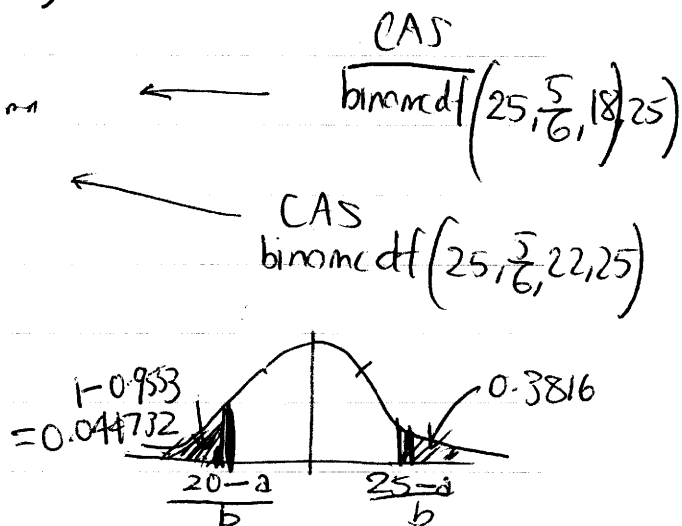 CAS
binomcdf(25, 5/6, 18, 25)
CAS
binomcdf(25, 5/6, 22, 25)
1-0.9553
=0.044732
0.3816
20-a/b
25-a/b